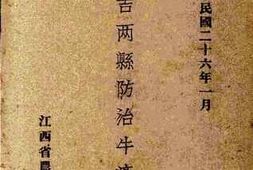 民國二十六年一月
吉两縣防治牛
江西省農